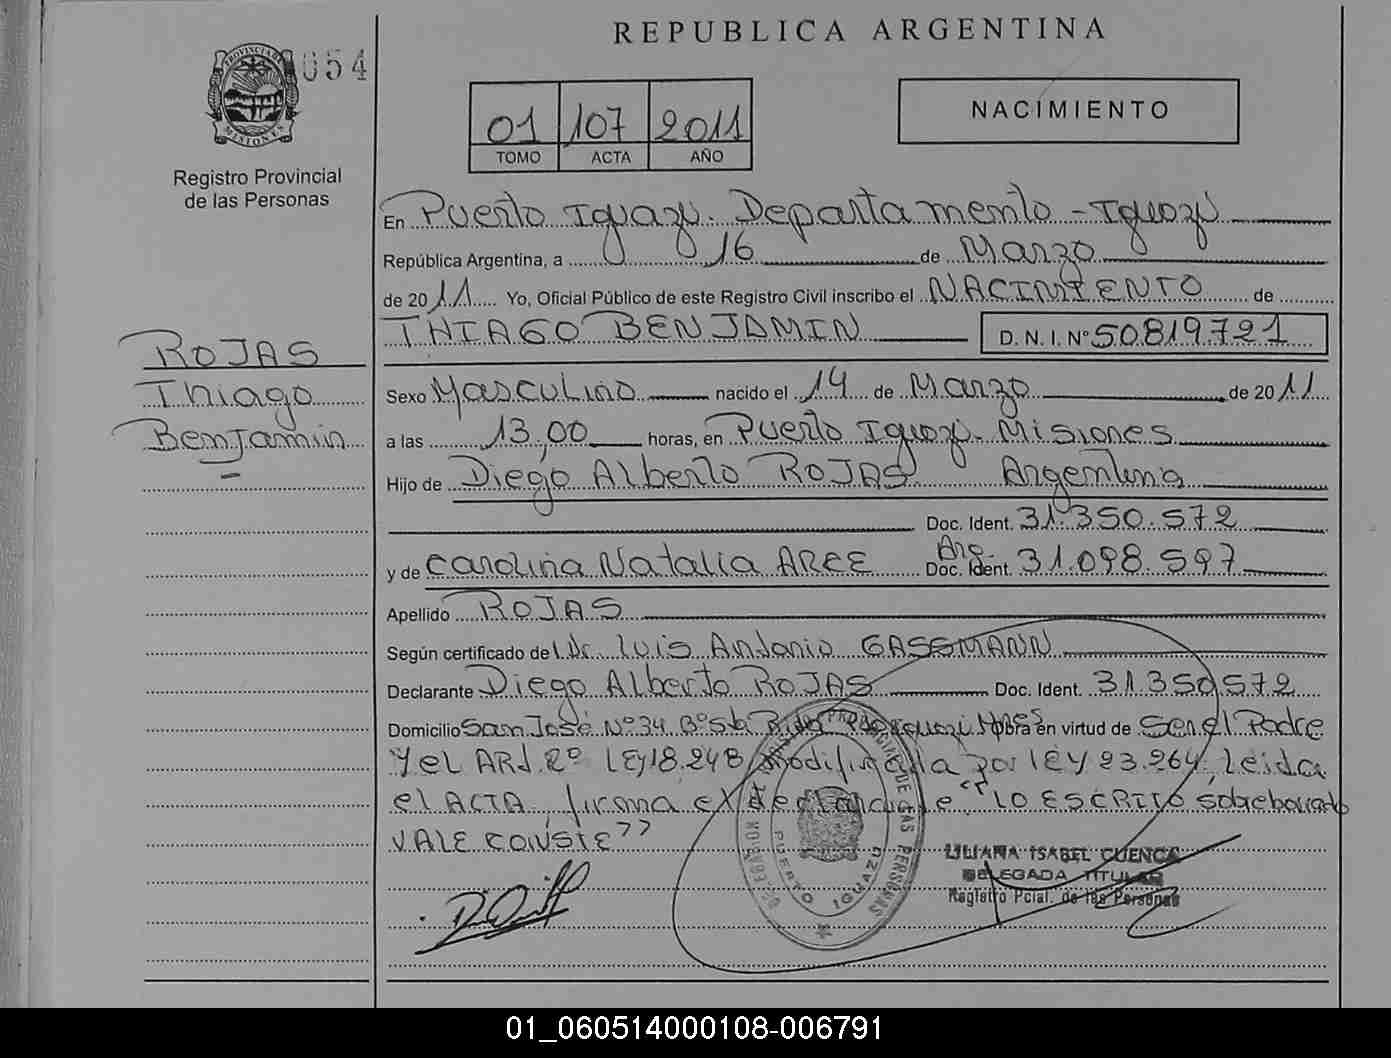 REPUBLICA ARGENTINA
054
PROVINCIA DE MISIONES
Registro Provincial
de las Personas
01 107 2011
TOMO ACTA AÑO
NACIMIENTO
En Puerto Iguazú. Departamento - Iguazú
República Argentina, a 16 de Marzo
de 2011 Yo, Oficial Público de este Registro Civil inscribo el NACIMIENTO de
THIAGO BENJAMIN D. N. I. Nº 50819721
ROJAS
Thiago
Benjamín
Sexo Masculino nacido el 14 de Marzo de 2011
a las 13,00 horas, en Puerto Iguazú. Misiones
Hijo de Diego Alberto ROJAS Argentina
Doc. Ident. 31.350.572
y de Carolina Natalia ARCE Arg. Doc. Ident. 31.098.597
Apellido ROJAS
Según certificado de Dr. Luis Antonio GASSMANN
Declarante Diego Alberto ROJAS Doc. Ident. 31350572
Domicilio San José Nº 34 Bº Sta Rita Mnes Obra en virtud de Ser el Padre
y el ARt. 2º LEY 18.248 modificada por LEY 23.264, Leida
el ACTA, firma el declarante "LO ESCRITO sobreborrado
VALE CONSTE"
DELEGACION DEL REGISTRO PROVINCIAL DE LAS PERSONAS
PUERTO IGUAZU
LILIANA ISABEL CUENCA
DELEGADA TITULAR
Registro Pcial. de las Personas
01_060514000108-006791